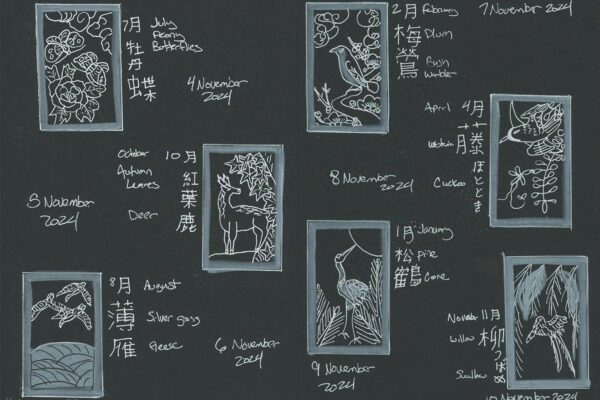 7月 July
牡丹 Peony
Butterflies
蝶
4 November
2024
October 10月
Autumn
Leaves
紅葉
Deer 鹿
5 November
2024
8月 August
薄 Silver grass
雁 Geese
6 November
2024
2月 February
梅 Plum
鶯 Bush
Warbler
7 November 2024
April 4月
藤
Cuckoo
8 November
2024
1月 January
松 Pine
鶴 Crane
9 November
2024
November 11月
Willow 柳
Swallow つばめ
10 November 2024